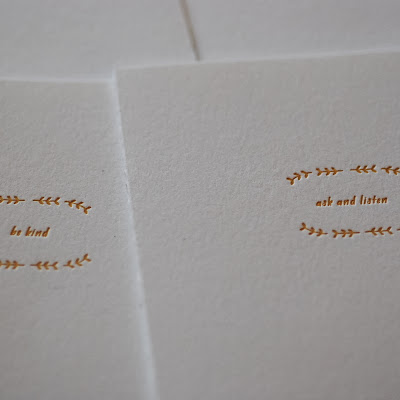 be kind
ask and listen